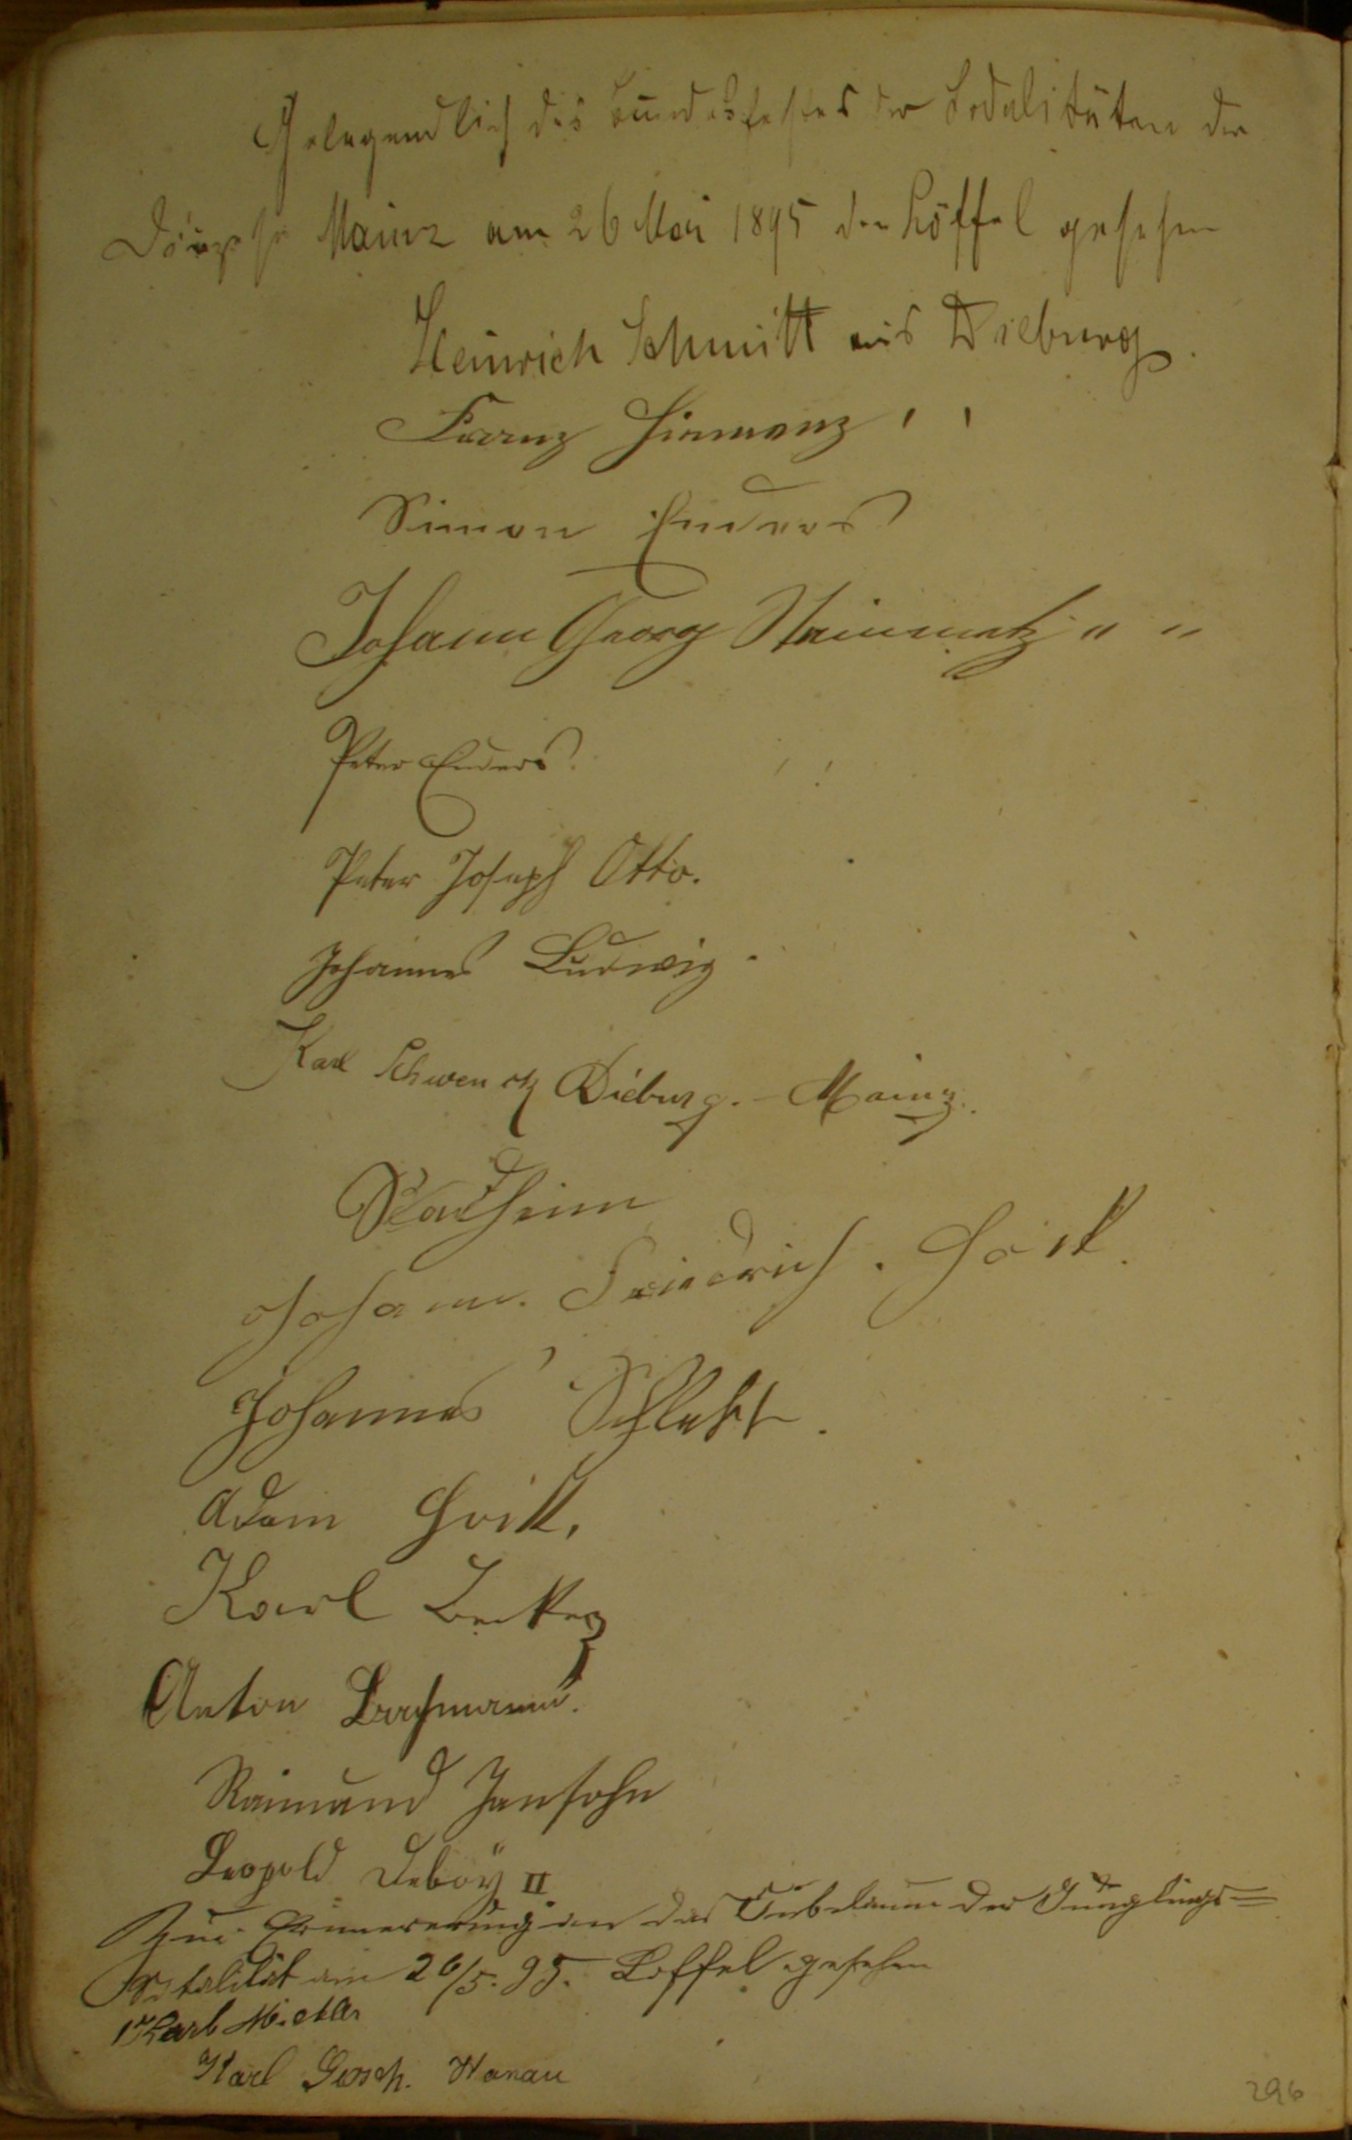 Gelegendlich des Bundesfestes der Sodalitäten der
Diözese Mainz am 26 Mai 1895 den Löffel gesehen
Heinrich Schmitt aus Dieburg.
Franz " "
Simon Enders
Johann Georg Steinmetz " "
Peter Enders.
Peter Joseph Otto.
Johannes Ludwig.
Karl Schwenck Dieburg. - Mainz.
Stadheim
Johann. Friedrich.
Johannes
Adam
Karl Becker
Anton Bachmann.
Raimund Jansohn
Leopold Deboy II.
Zur Erinnerung an das Jubeläum der Jünglings=
Sotalität am 26/5. 95. Löffel gesehen
Karl Michler
Karl Gosch. Hanau
296